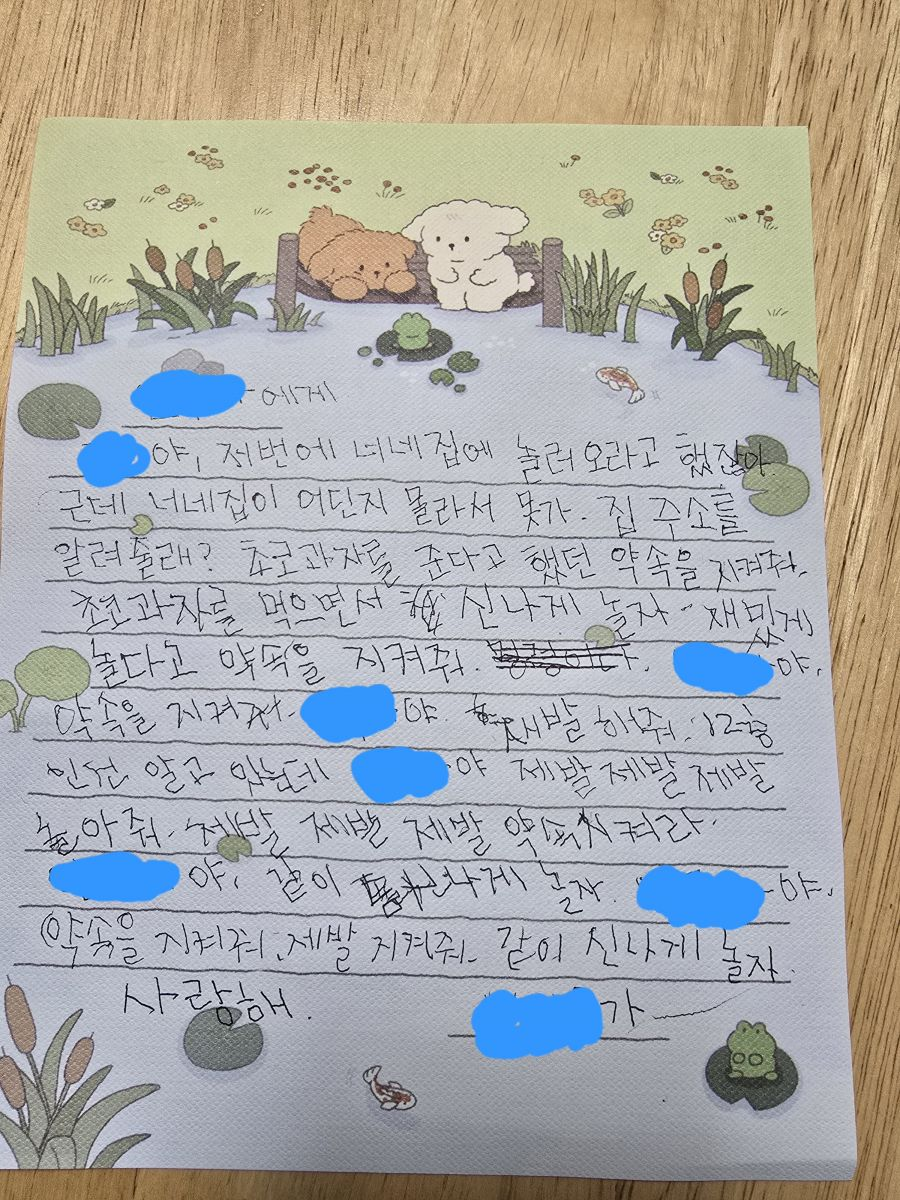 에게
야, 저번에 너네집에 놀러오라고 했잖아
근데 너네집이 어딘지 몰라서 못가. 집 주소를
알려줄래? 초코과자를 준다고 했던 약속을 지켜줘.
초코과자를 먹으면서 신나게 놀자. 재미있게
놀다고 약속을 지켜줘. 야,
약속을 지켜줘. 야. 제발 해줘. 12층
인건 알고 있는데 야 제발 제발 제발
놀아줘. 제발 제발 제발 약속지켜라.
야. 같이 신나게 놀자. 야.
약속을 지켜줘. 제발 지켜줘. 같이 신나게 놀자.
사랑해. 가